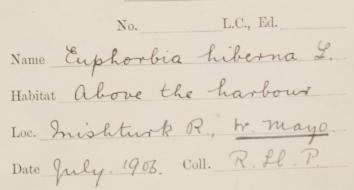 No. L.C., Ed.
Name Euphorbia hiberna L.
Habitat Above the harbour
Loc. Inishturk R, W. Mayo.
Date July. 1906. Coll. R. Ll. P.